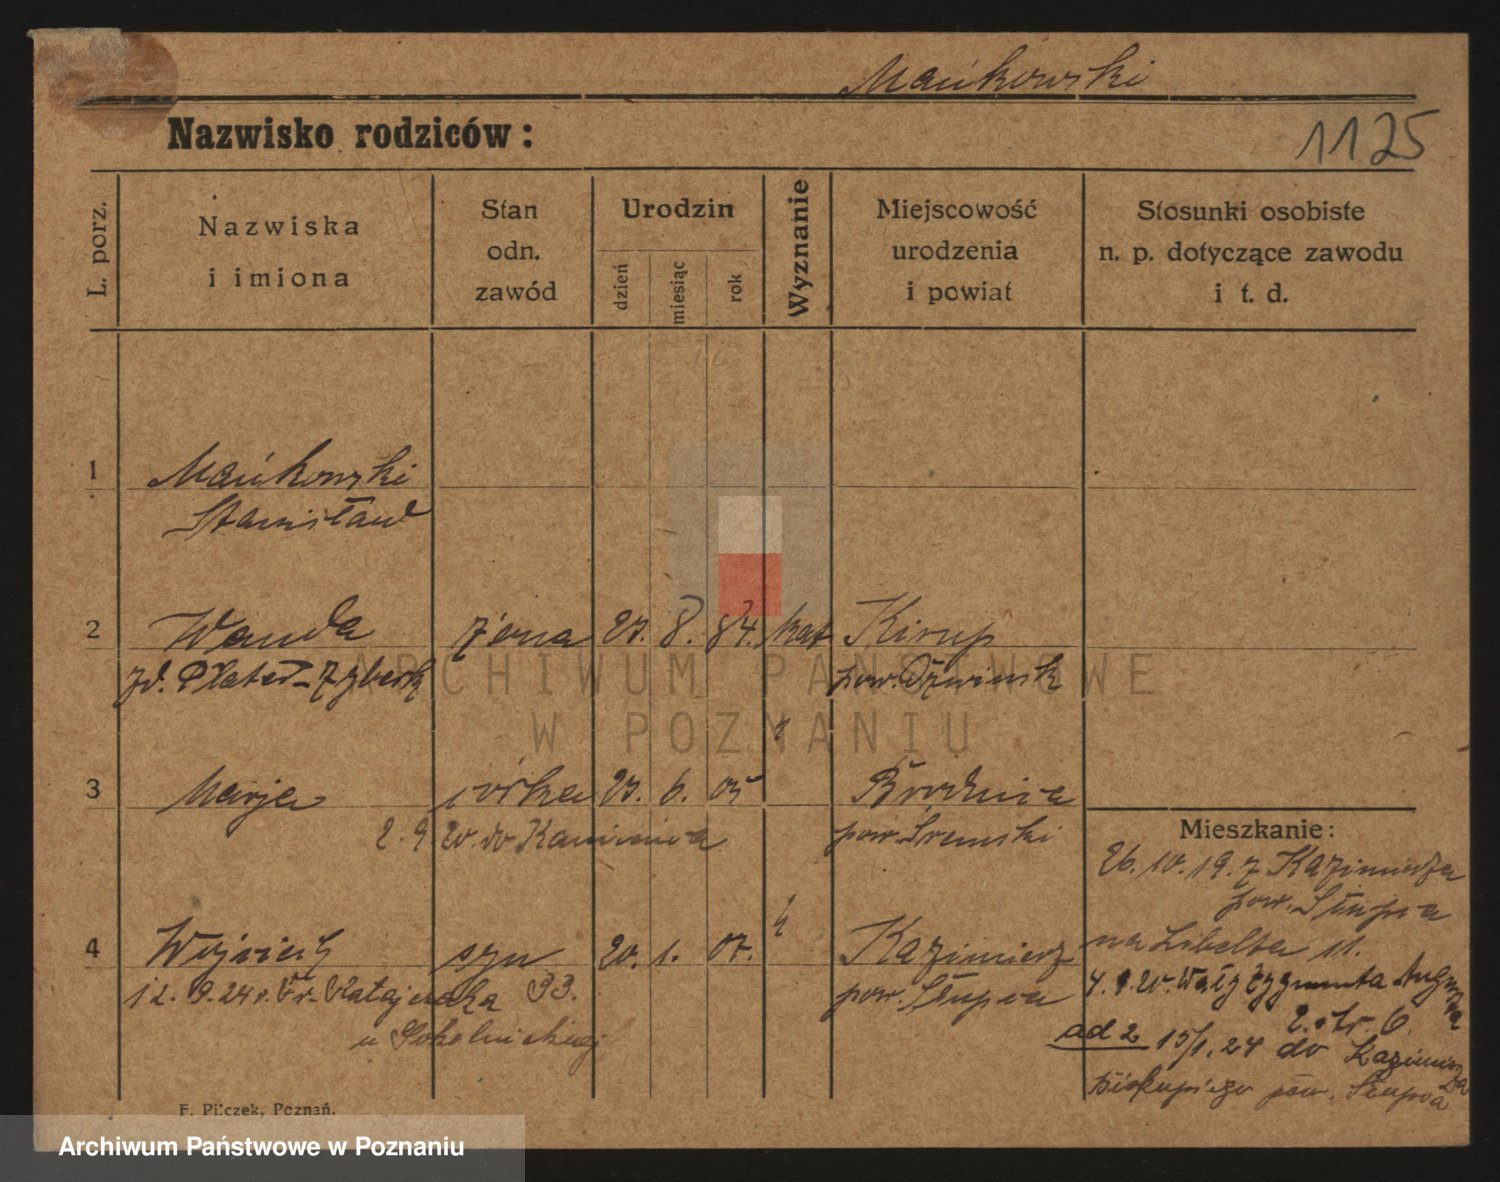 Mańkowski
Nazwisko rodziców:
1125
L. porz.
Nazwiska
i imiona
Stan
odn.
zawód
Urodzin
dzień
miesiąc
rok
Wyznanie
Miejscowość
urodzenia
i powiat
Stosunki osobiste
n. p. dotyczące zawodu
i t. d.
1 Mańkowski
Stanisław
2 Wanda żona 27. 8. 84. kat Kirup
zd. Plater-Zyberk pow. Dźwinsk
3 Marja córka 27. 6. 05 Brodnica
2. 9 20. do Kamienica pow. Śremski
4 Wojciech syn 20. 1. 07. Kazimierz
12. 9. 24 r. Fr. Ratajczaka 33. pow. Słupca
u Sokolnickiej
Mieszkanie:
26. 10. 19. z Kazimierza
pow. Słupca
na Libelta 11.
4. 9. 20. Wały Zygmunta Augusta
2. str. 6.
ad 2 15/1. 24 do Kazimierza
Biskupiego pow. Słupca
F. Pilczek, Poznań.
ARCHIWUM PAŃSTWOWE
W POZNANIU
Archiwum Państwowe w Poznaniu